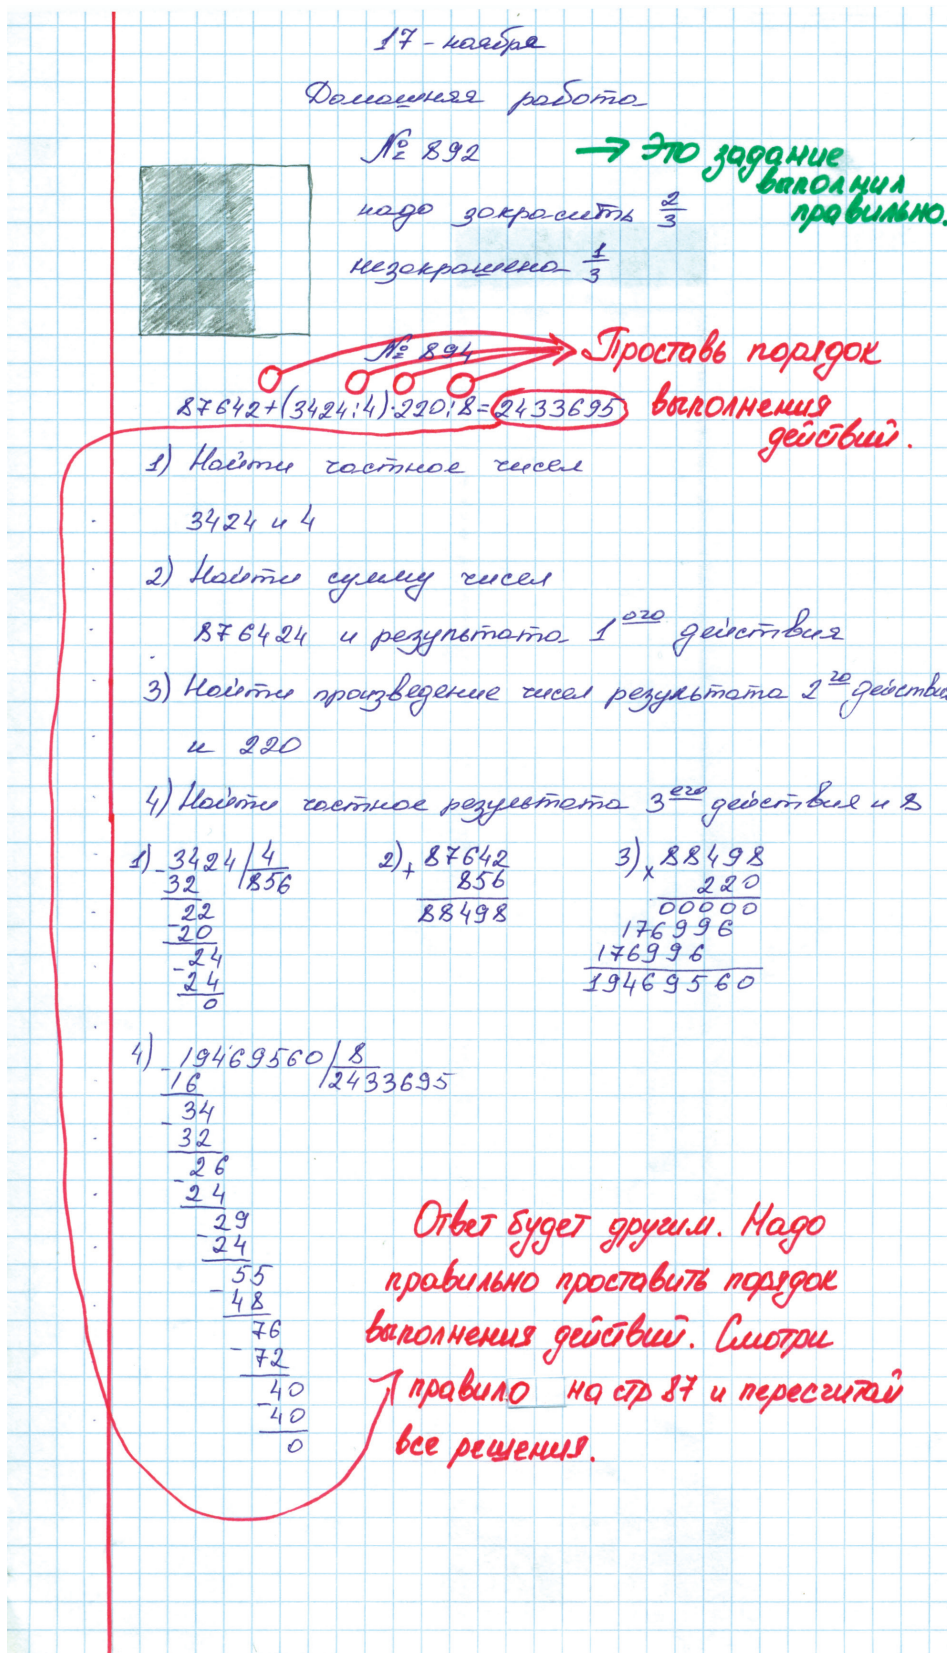 17 - ноября
Домашняя работа
№ 892
→ Это задание
выполнил
правильно.
надо закрасить 2/3
незакрашено 1/3
№ 894
Проставь порядок
выполнения
действий.
87642+(3424:4)·220:8=2433695
1) Найти частное чисел
3424 и 4
2) Найти сумму чисел
876424 и результата 1ого действия
3) Найти произведение чисел результата 2го действия
и 220
4) Найти частное результата 3его действия и 8
1) 3424 | 4
-32 | 856
22
-20
24
-24
0
2) + 87642
856
88498
3) x 88498
220
00000
176996
176996
19469560
4) 19469560 | 8
-16 | 2433695
34
-32
26
-24
29
-24
55
-48
76
-72
40
-40
0
Ответ будет другим. Надо
правильно проставить порядок
выполнения действий. Смотри
правило на стр 87 и пересчитай
все решения.